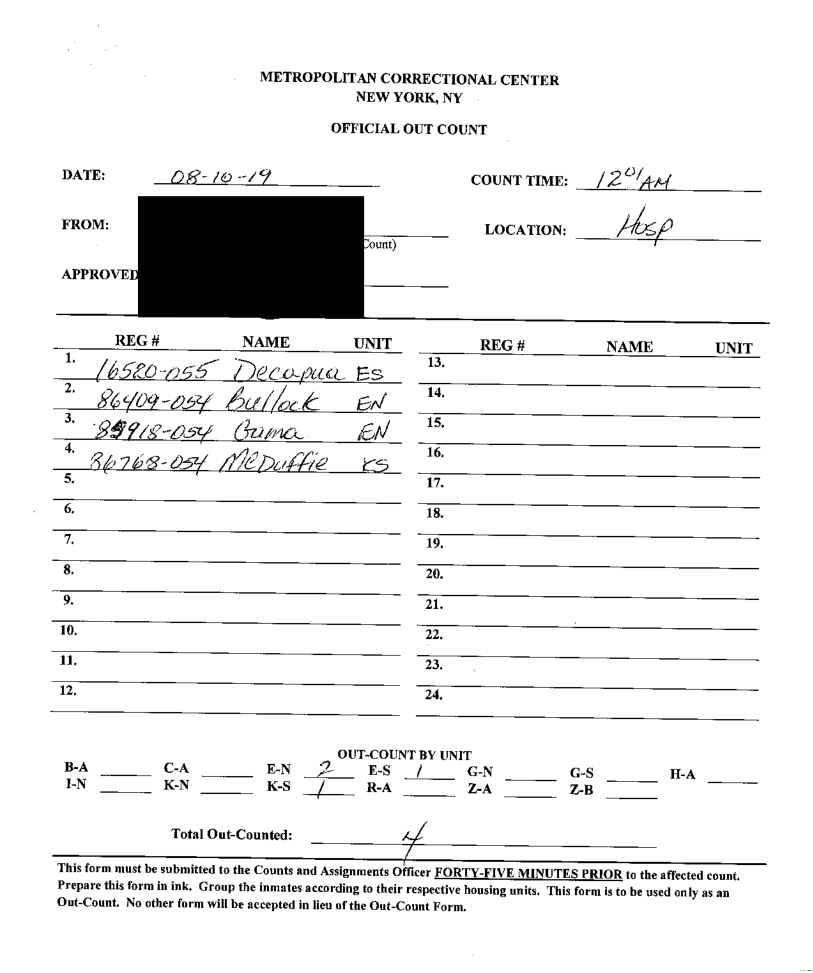 METROPOLITAN CORRECTIONAL CENTER
NEW YORK, NY
OFFICIAL OUT COUNT
DATE: 08-10-19 COUNT TIME: 12 01 AM
FROM: LOCATION: Hosp
Count)
APPROVED
REG # NAME UNIT REG # NAME UNIT
1. 16520-055 Decapua ES 13.
2. 86409-054 Bullock EN 14.
3. 918-054 EN 15.
4. 86768-054 McDuffie KS 16.
5. 17.
6. 18.
7. 19.
8. 20.
9. 21.
10. 22.
11. 23.
12. 24.
OUT-COUNT BY UNIT
B-A C-A E-N 2 E-S 1 G-N G-S H-A
I-N K-N K-S 1 R-A Z-A Z-B
Total Out-Counted: 4
This form must be submitted to the Counts and Assignments Officer FORTY-FIVE MINUTES PRIOR to the affected count.
Prepare this form in ink. Group the inmates according to their respective housing units. This form is to be used only as an
Out-Count. No other form will be accepted in lieu of the Out-Count Form.